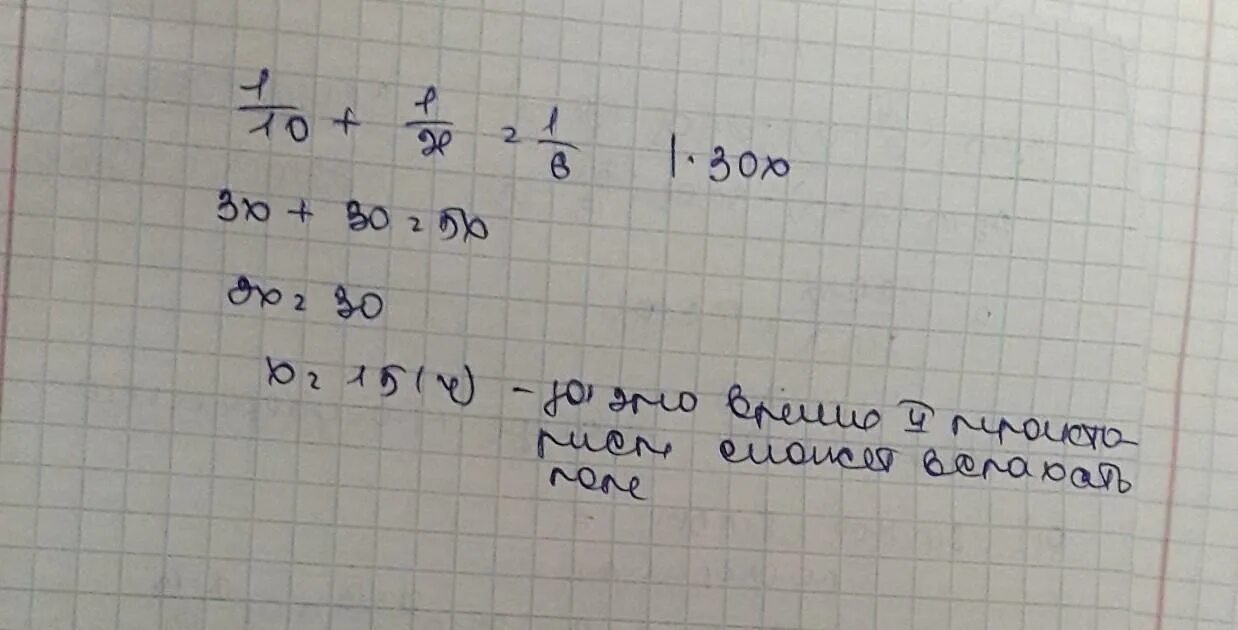 1/10 + 1/x = 1/6 | · 30x
3x + 30 = 5x
2x = 30
x = 15 (ч) – за это время II тракто-
рист сможет вспахать
поле